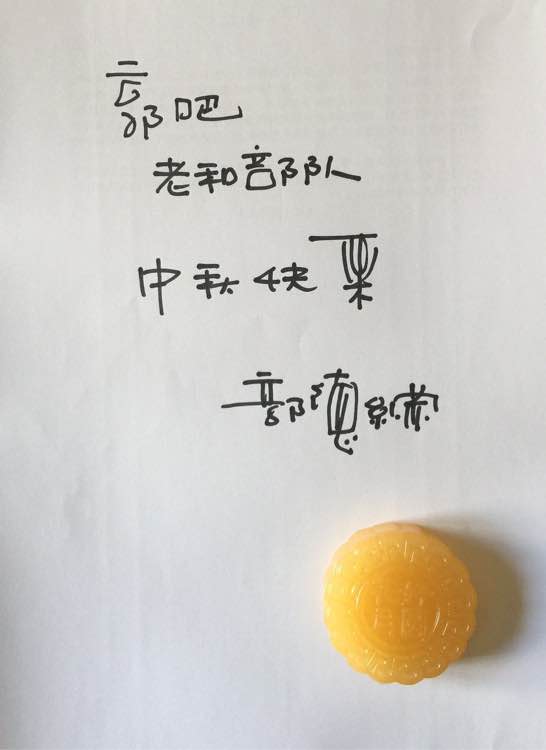 郭吧
老和部队
中秋快樂
郭德綱